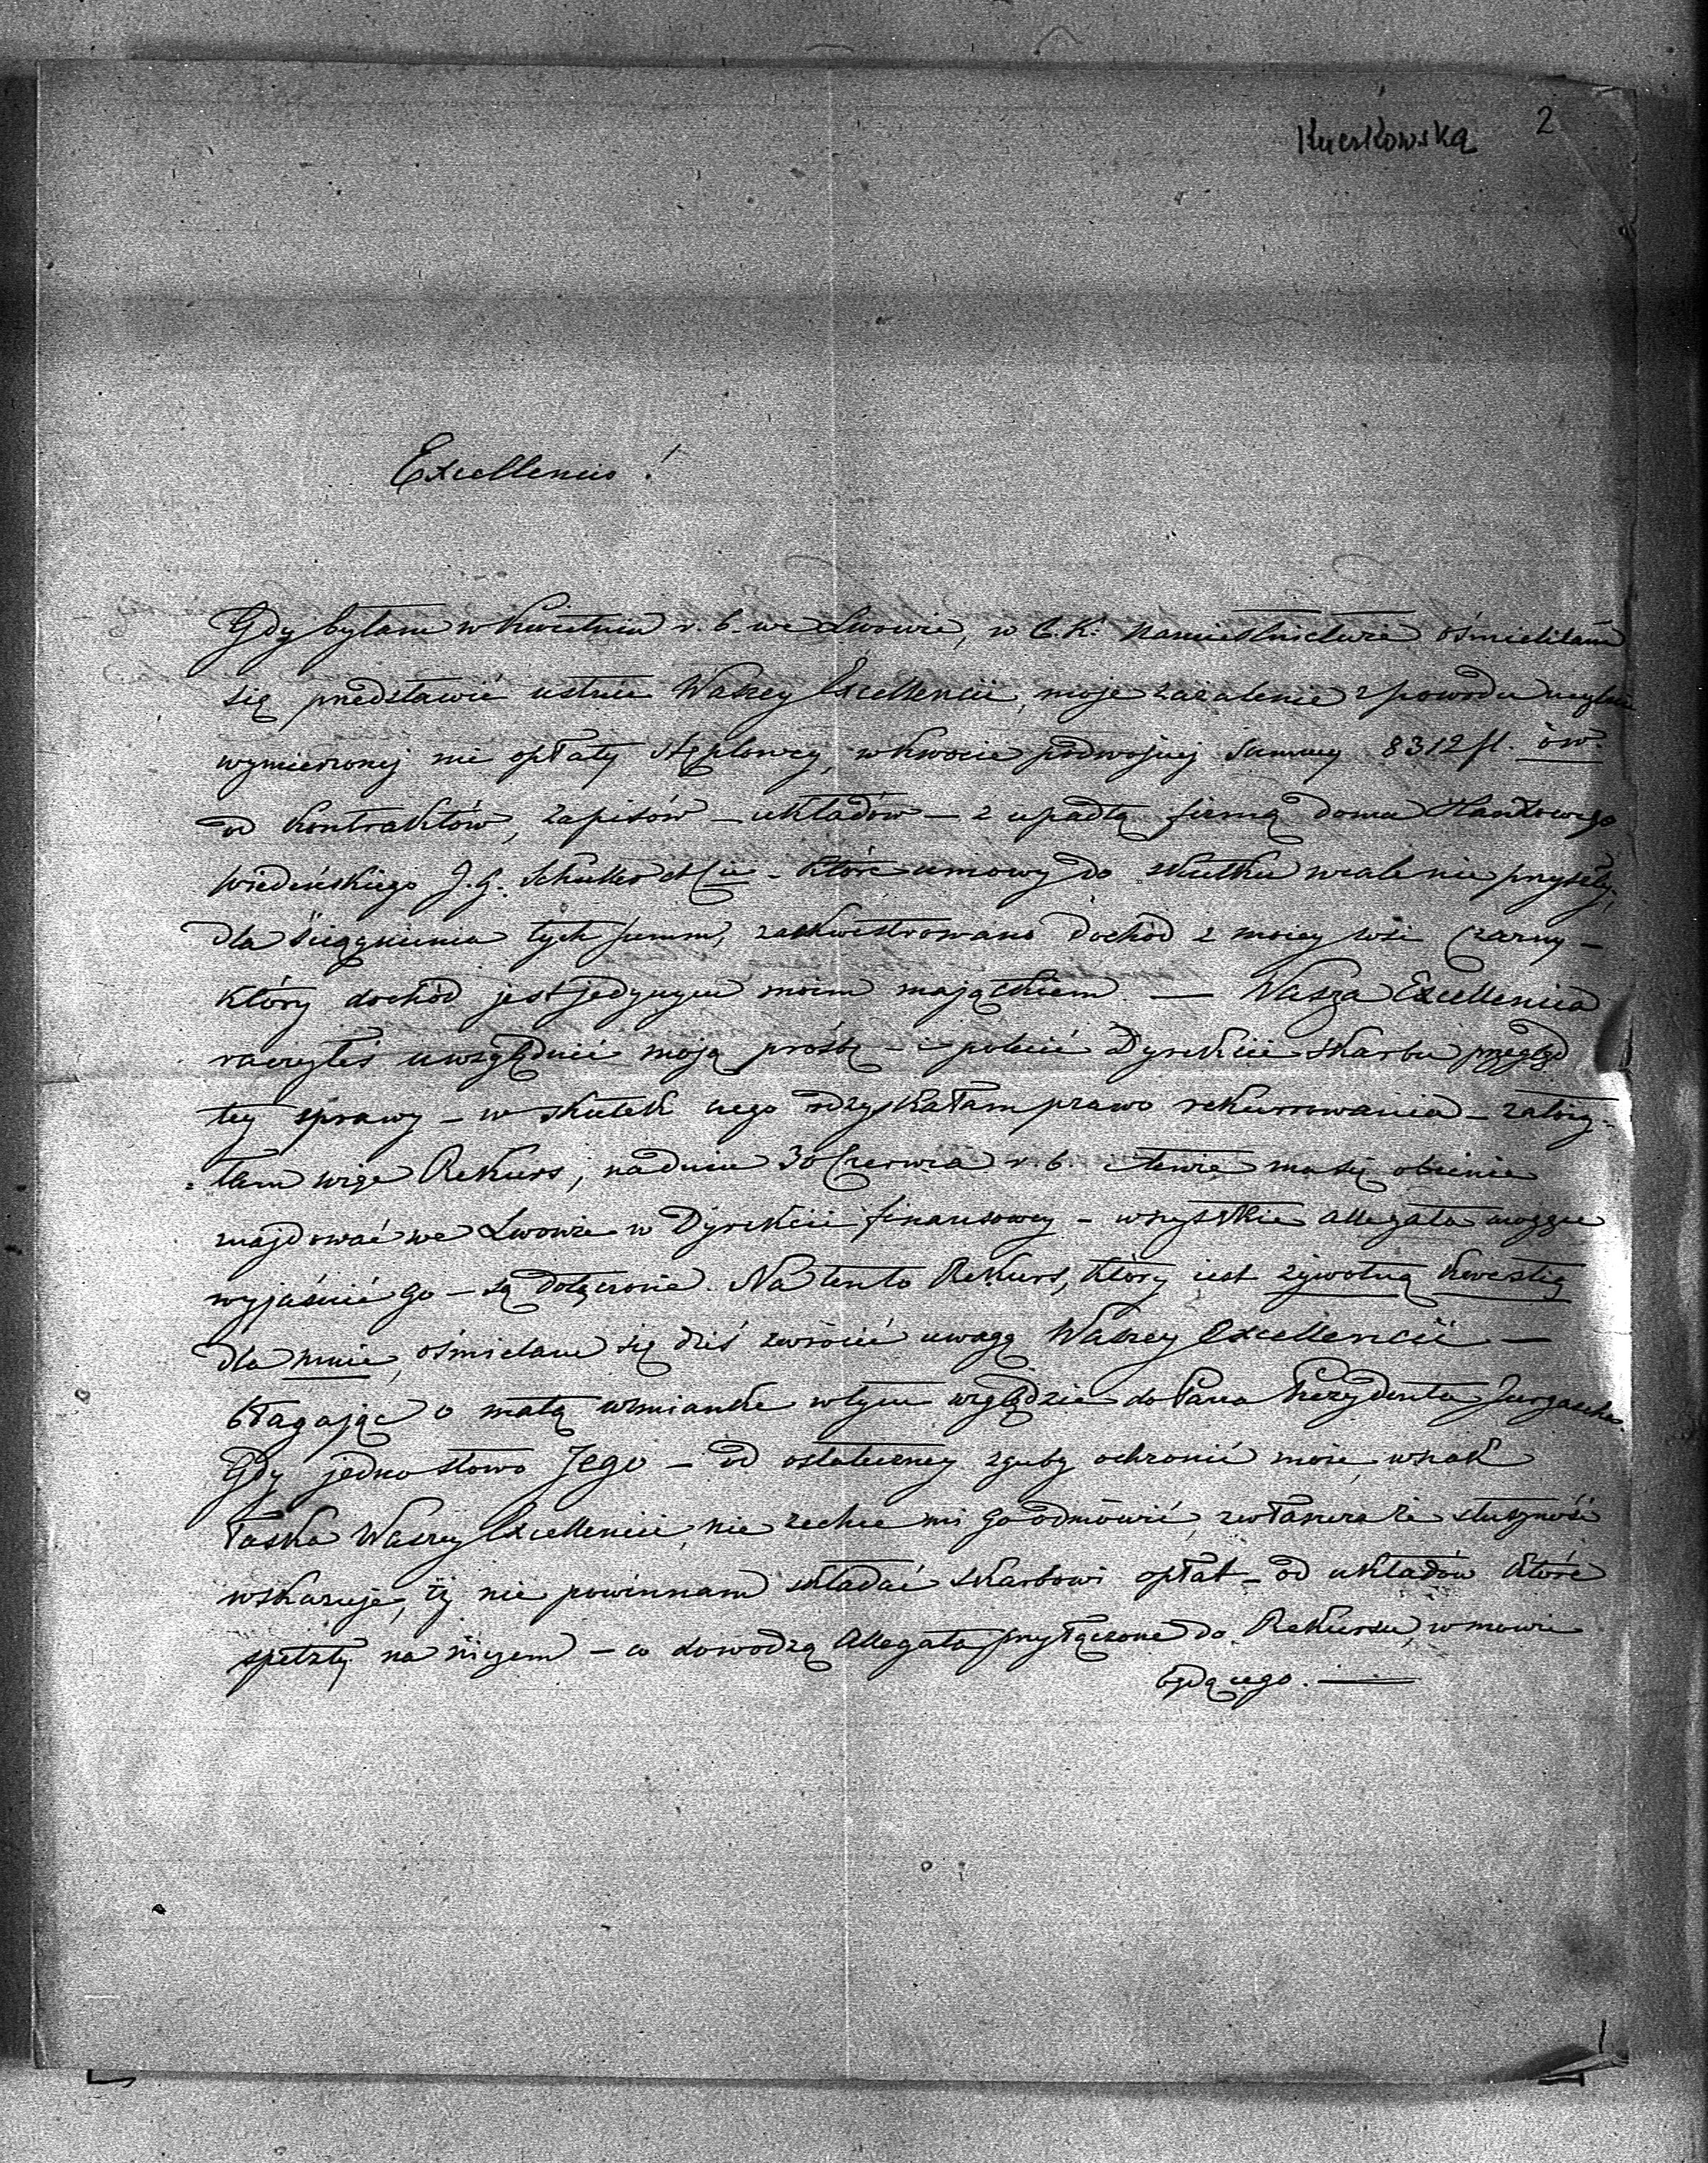 Kuczkowska 2
Excellencio!
Gdy byłam w Kwietniu r. b. we Lwowie, w C. K. Namiestnictwie ośmieliłam
się przedstawić ustnie Waszey Excellencii, moje zażalenie z powodu
wymierzonej mi opłaty stęplowey, w kwocie podwojnej summy 8312 fl. öw.
od Kontraktów, zapisów – układów – z upadłą firmą domu Handlowego
Wiedeńskiego J. G. Schuller et Cie – które umowy do skutku wcale nie przyszły,
dla ściągnienia tych summ, zasekwestrowano dochód z moiey wsi Czarny –
który dochód jest jedynym moim majątkiem — Wasza Excellencia
raczyłeś uwzględnić moją prośbę – i polecić Dyrekcii Skarbu przegląd
tey sprawy – w skutek czego odzyskałam prawo rekurrowania – założy=
=łam więc Rekurs, na dniu 30 Czerwca r. b. ma się obecnie
znajdować we Lwowie w Dyrekcii finansowey – wszystkie allegata mogące
wyjaśnić go – są dołączone. Na tento Rekurs, który jest żywotną kwestią
dla mnie, ośmielam się dziś zwrócić uwagę Waszey Excellencii —
błagając o małą wzmiankę w tym względzie do Pana Prezydenta
Gdy jedno słowo Jego – od ostateczney zguby ochronić może, wszak
łaska Waszey Excellencii, nie zechce mi go odmówić, zwłaszcza że słuszność
wskazuje, iż nie powinnam składać skarbowi opłat – od układów które
spełzły na niczem – co dowodzą Allegata przyłączone do Rekursu, w mowie
będącego. —